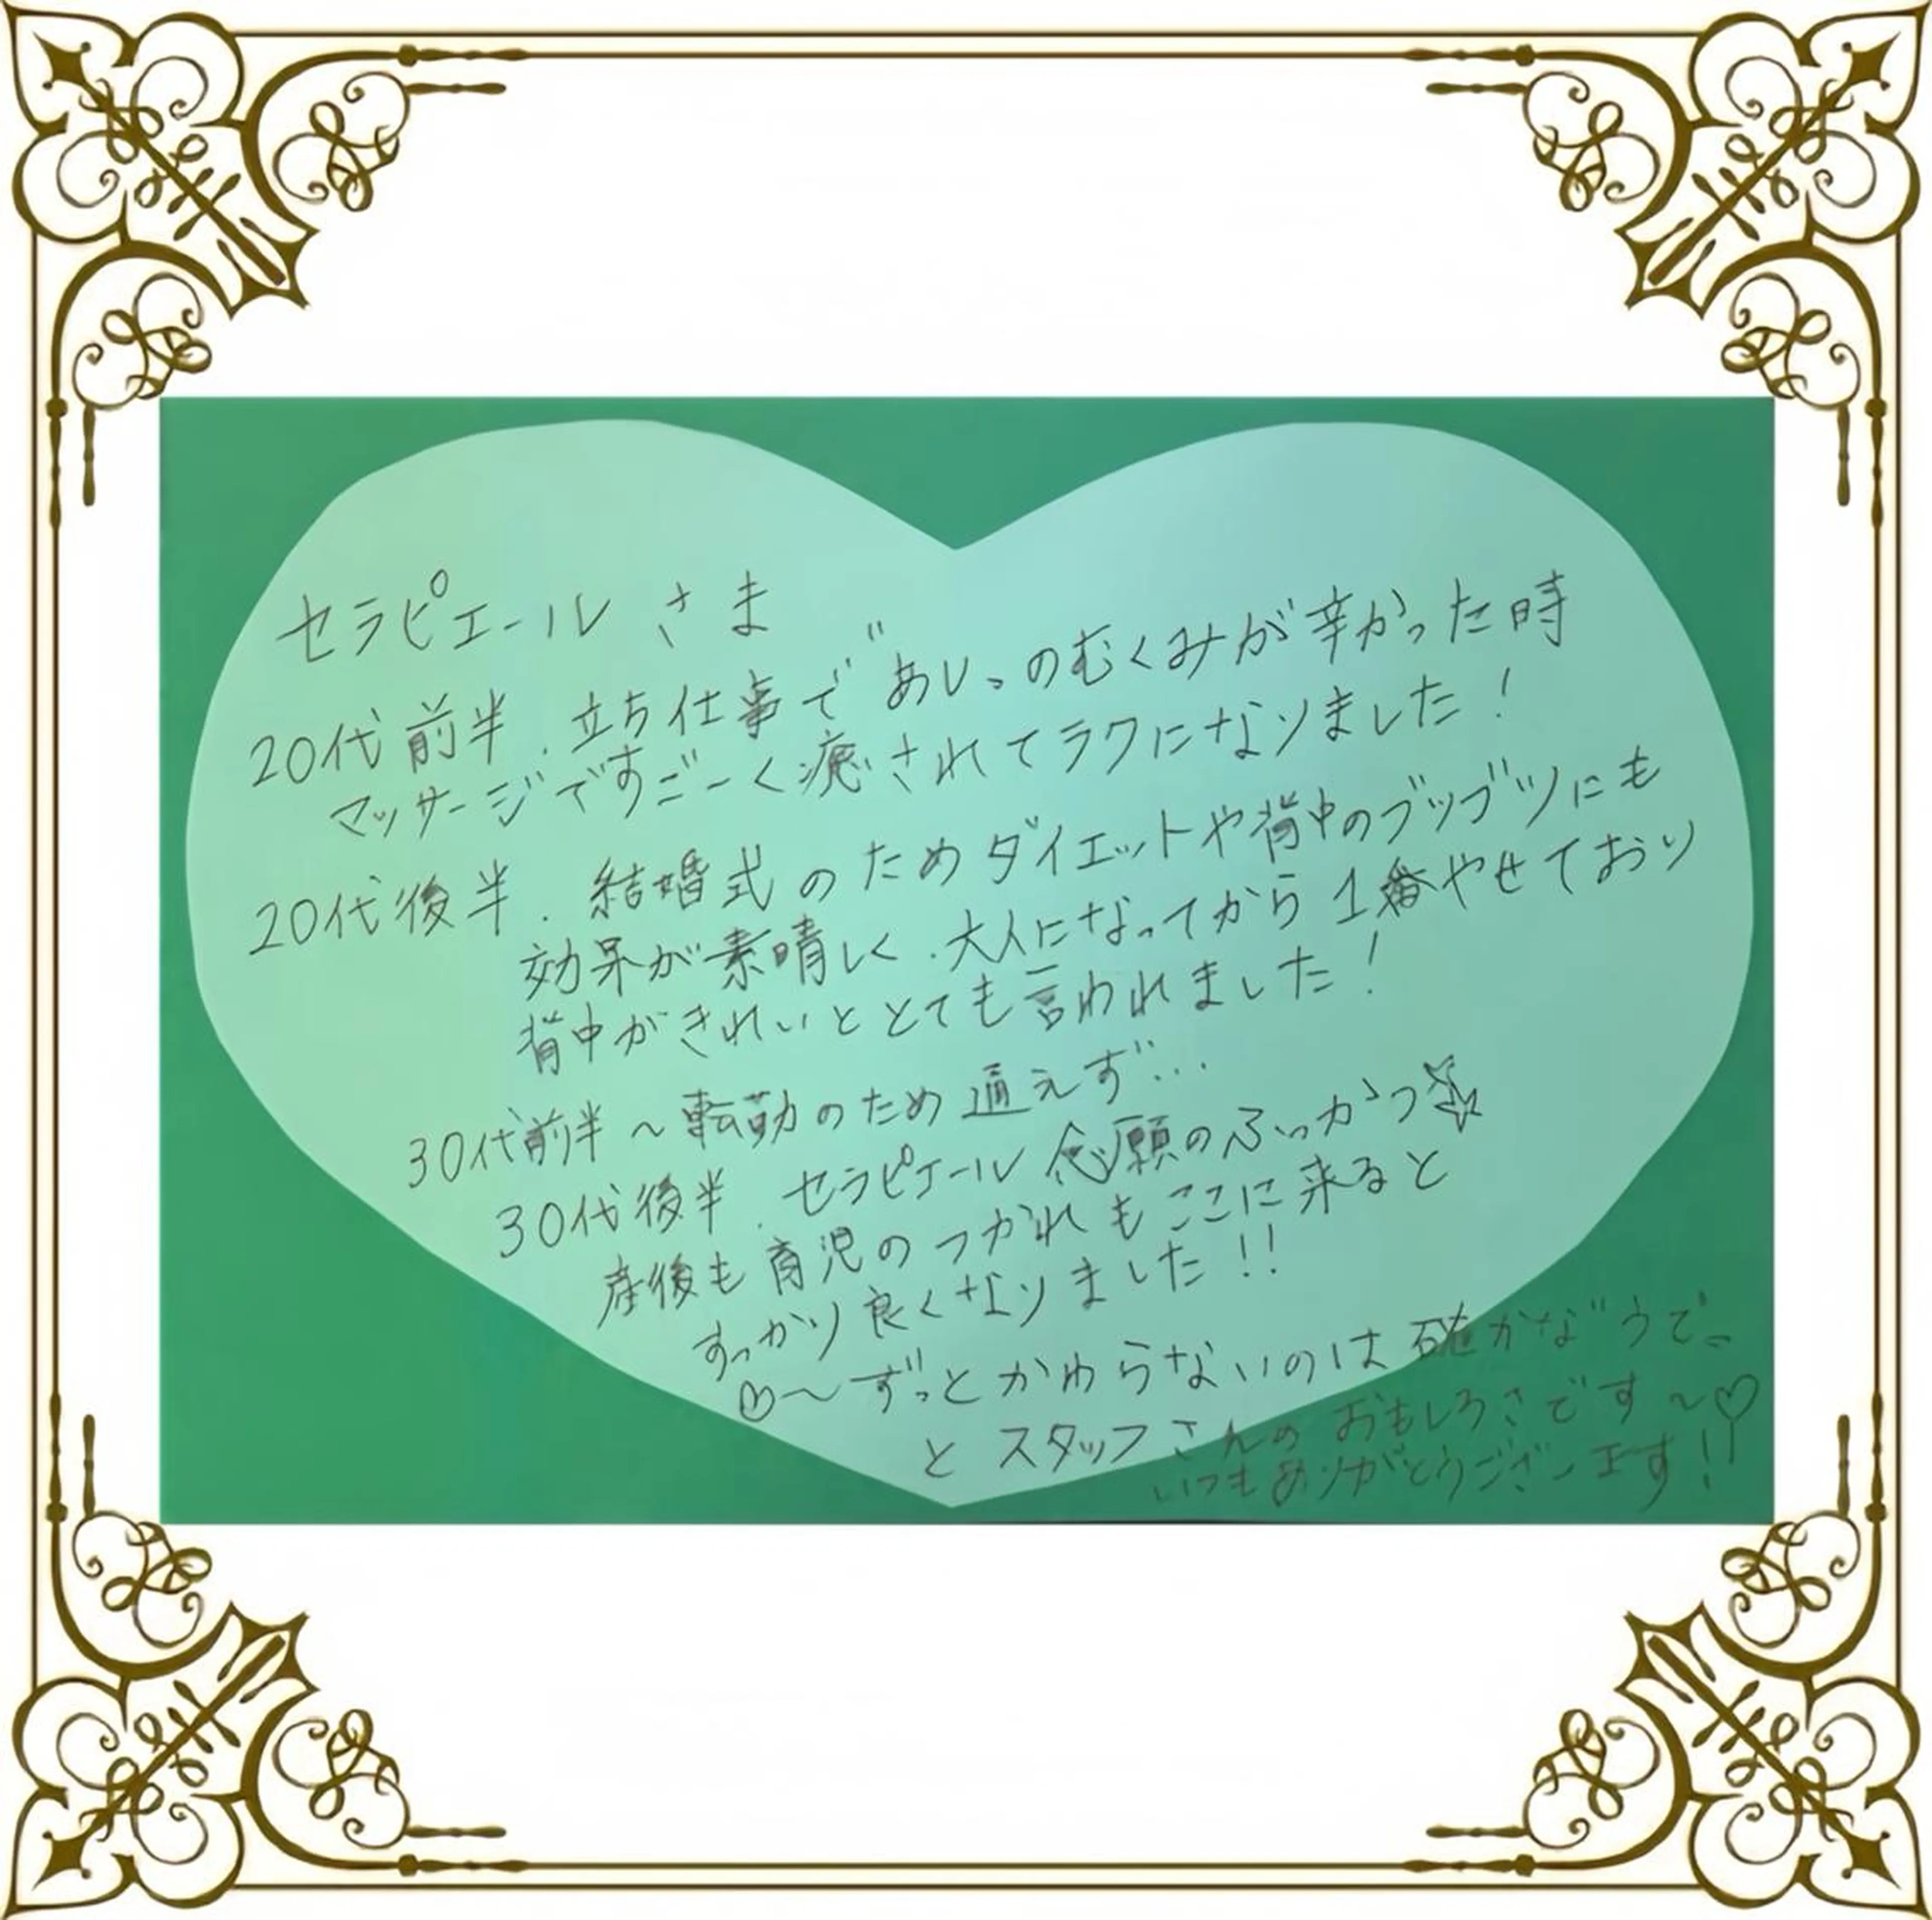 セラピエールさま
20代前半.立ち仕事で〝あし〟のむくみが辛かった時
マッサージですごーく癒されてラクになりました!
20代後半.結婚式のためダイエットや背中のブツブツにも
効果が素晴しく.大人になってから1番やせており
背中がきれいととても言われました!
30代前半~転勤のため通えず…
30代後半.セラピエール念願のふっかつ☆
産後も育児のつかれもここに来ると
すっかり良くなりました!!
♡~ずっとかわらないのは確かな〝うで〟
とスタッフさんのおもしろさです~♡
いつもありがとうございます!!